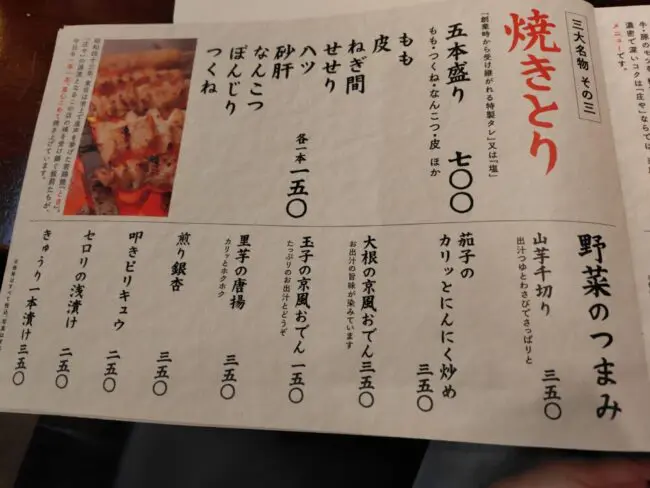 牛・豚のモツを
濃密で深いコクは「庄や」ならでは
メニューです。
三大名物 その三
焼きとり
「創業時から受け継がれる特製タレ」又は「塩」
五本盛り 七〇〇
もも・つくね・なんこつ・皮 ほか
もも
皮
ねぎ間
せせり
ハツ
砂肝
なんこつ
ぼんじり
つくね
各一本 一五〇
野菜のつまみ
山芋千切り 三五〇
出汁つゆとわさびでさっぱりと
茄子の
カリッとにんにく炒め 三五〇
大根の京風おでん 三五〇
お出汁の旨味が染みています
玉子の京風おでん 一五〇
たっぷりのお出汁とどうぞ
里芋の唐揚 三五〇
カリッとホクホク
煎り銀杏 三五〇
叩きピリキュウ 二五〇
セロリの浅漬け 二五〇
きゅうり一本漬け 三五〇